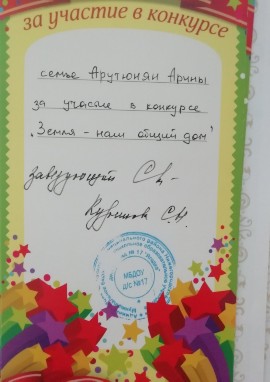 за участие в конкурсе
семье Арутюнян Арины
за участие в конкурсе
"Земля - наш общий дом"
заведующий
МБДОУ
Д/С №17